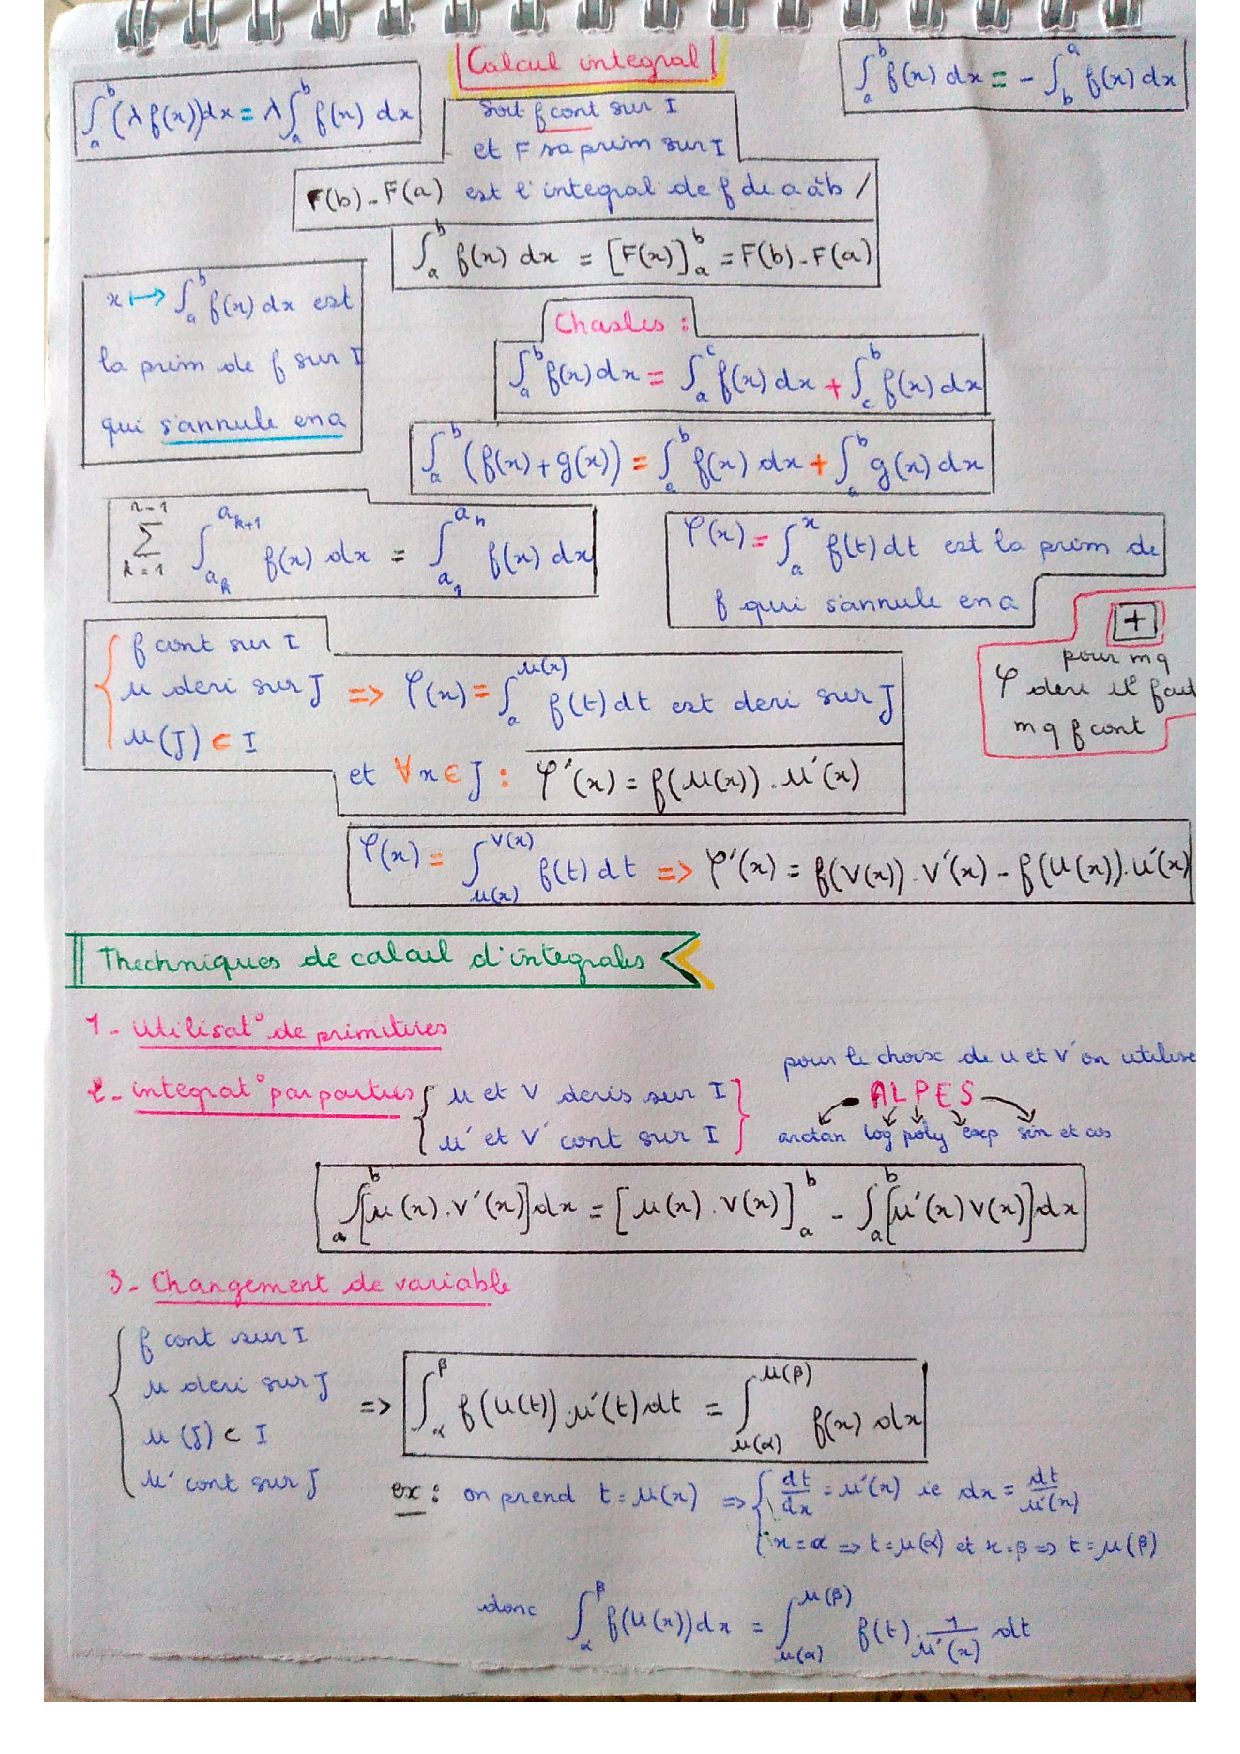 Calcul integral
∫_a^b (λ f(x))dx = λ∫_a^b f(x) dx
∫_a^b f(x) dx = - ∫_b^a f(x) dx
Soit f cont sur I
et F sa prim sur I
F(b) - F(a) est l'integral de f de a à b /
∫_a^b f(x) dx = [F(x)]_a^b = F(b) - F(a)
x ↦ ∫_a^b f(x) dx est
la prim de f sur I
qui s'annule en a
Chasles :
∫_a^b f(x) dx = ∫_a^c f(x) dx + ∫_c^b f(x) dx
∫_a^b (f(x) + g(x)) = ∫_a^b f(x) dx + ∫_a^b g(x) dx
∑_{k=1}^{n-1} ∫_{a_k}^{a_{k+1}} f(x) dx = ∫_{a_1}^{a_n} f(x) dx
φ(x) = ∫_a^x f(t) dt est la prim de
f qui s'annule en a
+
pour mq
φ deri il faut
mq f cont
f cont sur I
u deri sur J => φ(x) = ∫_a^{u(x)} f(t) dt est deri sur J
u(J) ⊂ I
et ∀x ∈ J : φ'(x) = f(u(x)) . u'(x)
φ(x) = ∫_{u(x)}^{v(x)} f(t) dt => φ'(x) = f(v(x)) . v'(x) - f(u(x)) . u'(x)
Thechniques de calcul d'integrales
1- Utilisat° de primitives
2- integrat° par parties { u et v deris sur I
u' et v' cont sur I }
pour le choix de u et v' on utilise
ALPES
arctan log poly exp sin et cos
∫_a^b [u(x) . v'(x)] dx = [u(x) . v(x)]_a^b - ∫_a^b [u'(x) v(x)] dx
3- Changement de variable
f cont sur I
u deri sur J
u(J) ⊂ I
u' cont sur J
=> ∫_α^β f(u(t)) u'(t) dt = ∫_{u(α)}^{u(β)} f(x) dx
ex : on prend t = u(x) => { dt/dx = u'(x) ie dx = dt/u'(x)
x = α => t = u(α) et x = β => t = u(β)
donc ∫_α^β f(u(x)) dx = ∫_{u(α)}^{u(β)} f(t) . 1/u'(x) dt